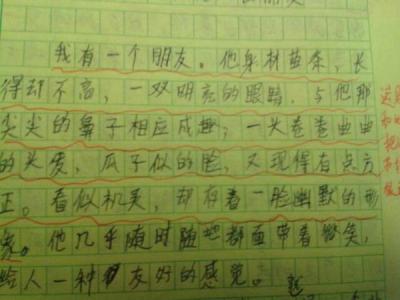 我有一个朋友。他身材苗条，长
得却不高，一双明亮的眼睛，与他那
尖尖的鼻子相应成趣；一头卷卷曲曲
的头发，瓜子似的脸，又现得有点方
正。看似机灵，却存着一脸幽默的形
象。他几乎随时随地都面带着微笑，
给人一种友好的感觉。